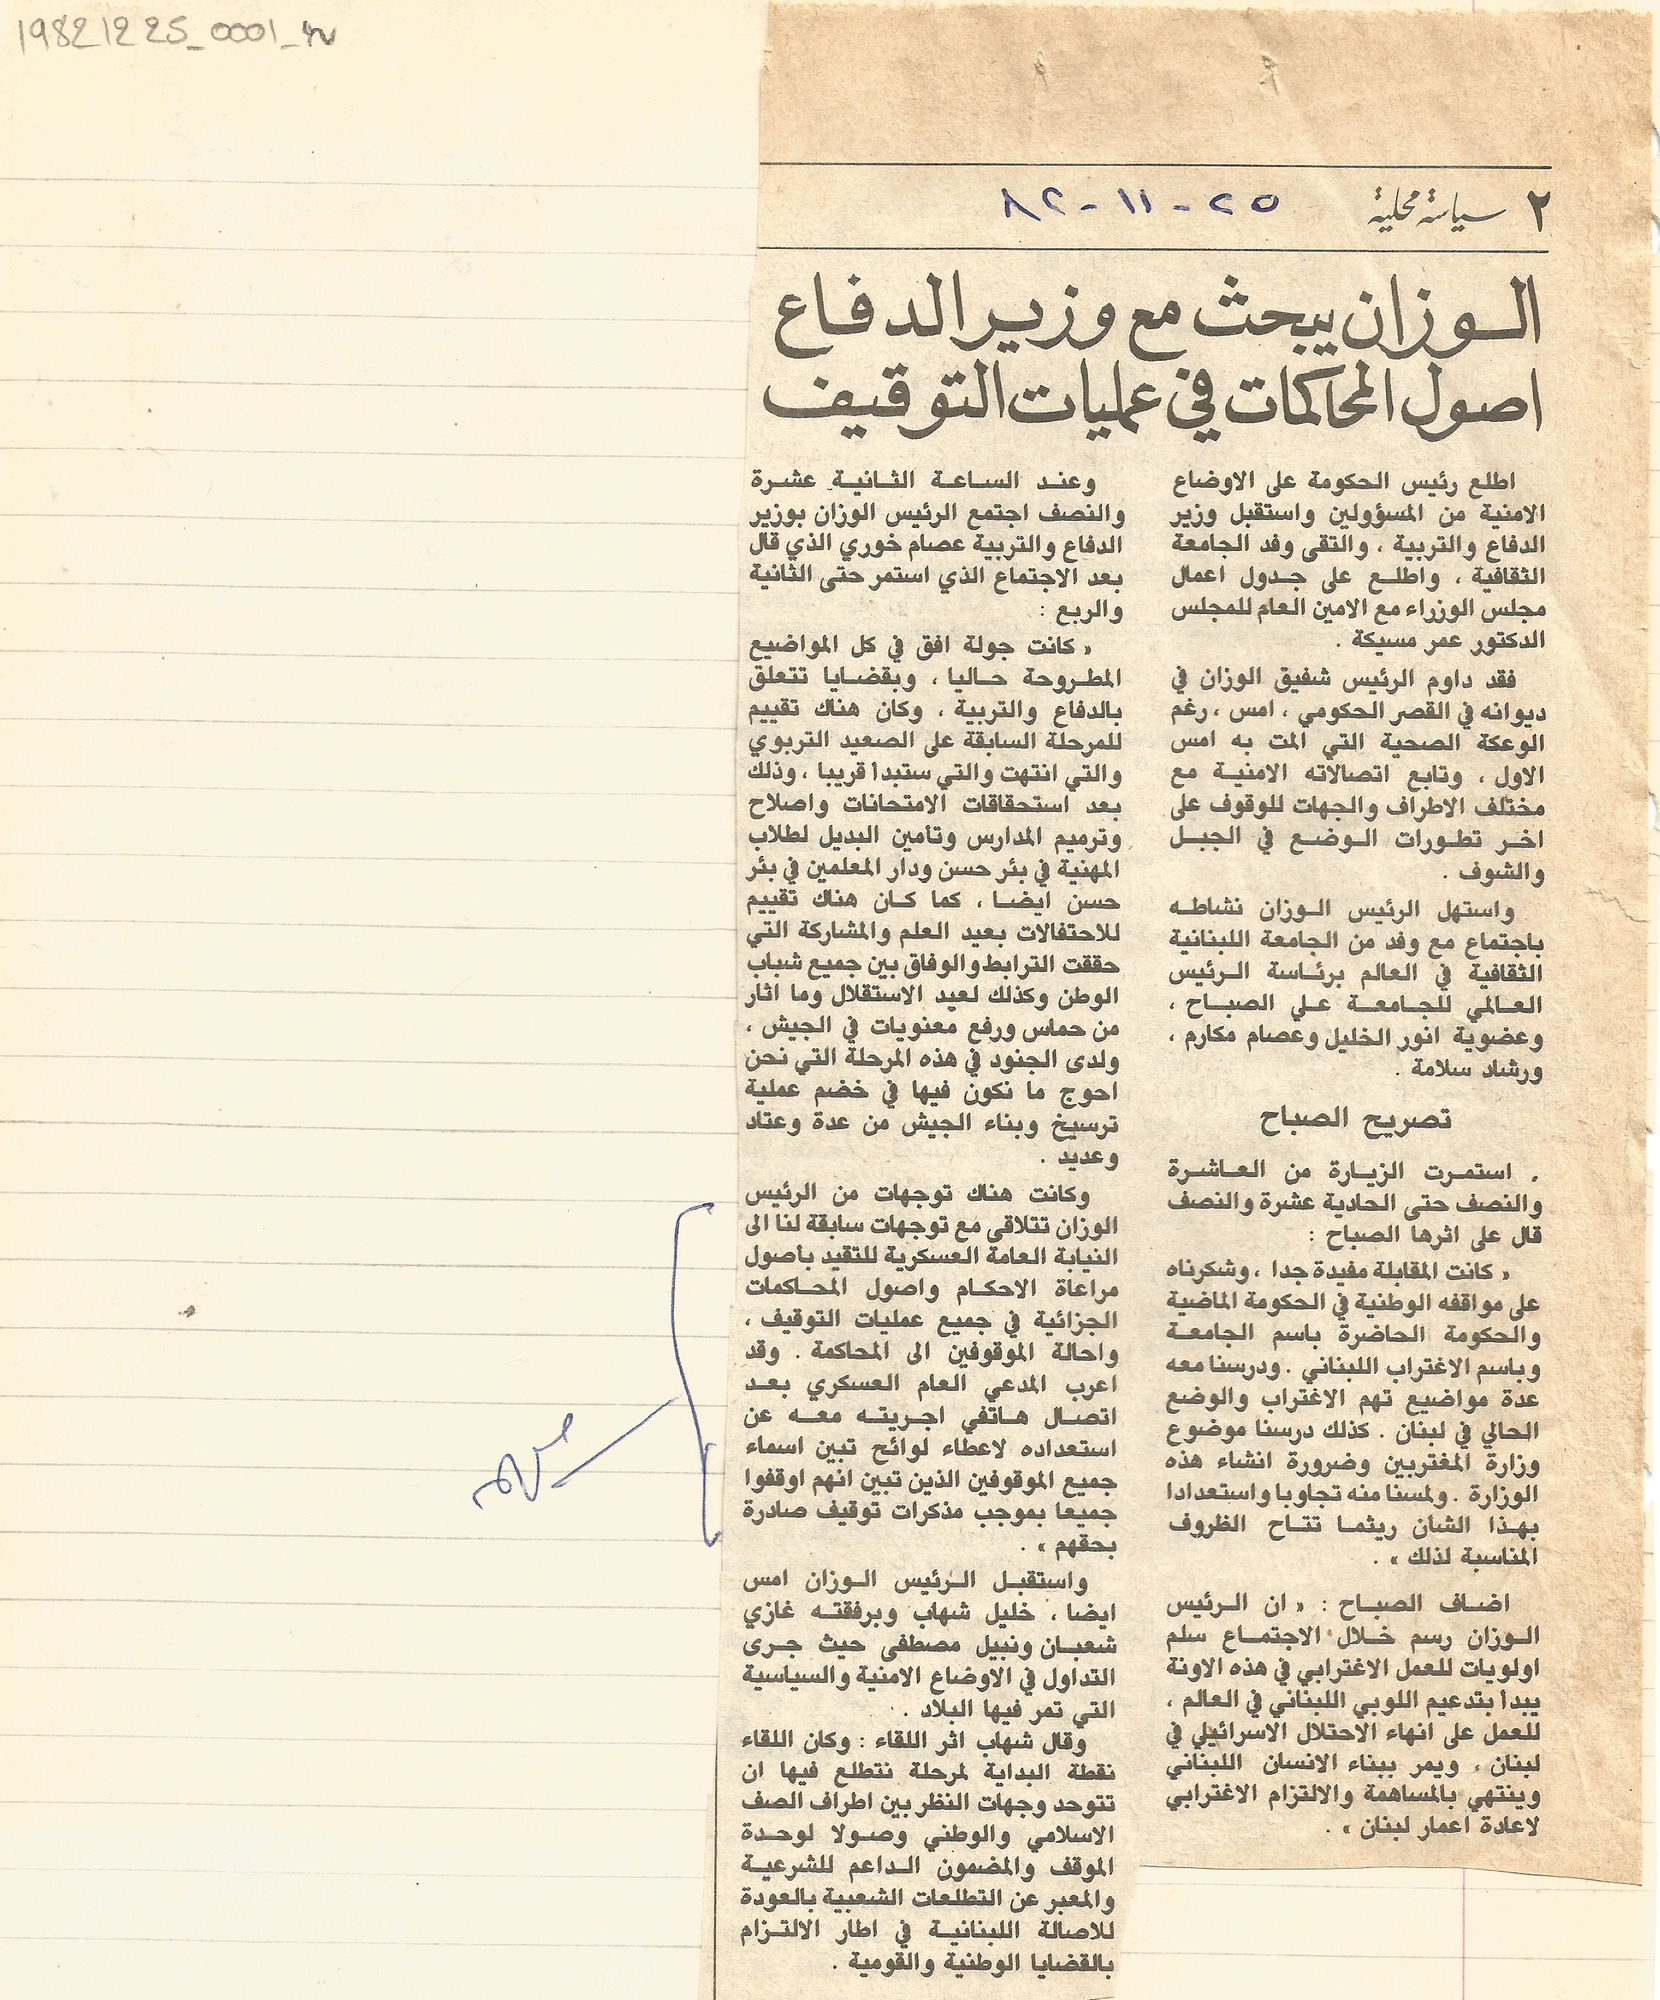 19821225_0001_
٢ سياسة محلية
٢٥ - ١١ - ٨٢
الوزان يبحث مع وزير الدفاع
اصول المحاكمات في عمليات التوقيف
اطلع رئيس الحكومة على الاوضاع
الامنية من المسؤولين واستقبل وزير
الدفاع والتربية ، والتقى وفد الجامعة
الثقافية ، واطلع على جدول اعمال
مجلس الوزراء مع الامين العام للمجلس
الدكتور عمر مسيكة .
فقد داوم الرئيس شفيق الوزان في
ديوانه في القصر الحكومي ، امس ، رغم
الوعكة الصحية التي المت به امس
الاول ، وتابع اتصالاته الامنية مع
مختلف الاطراف والجهات للوقوف على
اخر تطورات الوضع في الجبل
والشوف .
واستهل الرئيس الوزان نشاطه
باجتماع مع وفد من الجامعة اللبنانية
الثقافية في العالم برئاسة الرئيس
العالمي للجامعة علي الصباح ،
وعضوية انور الخليل وعصام مكارم ،
ورشاد سلامة .
تصريح الصباح
. استمرت الزيارة من العاشرة
والنصف حتى الحادية عشرة والنصف
قال على اثرها الصباح :
« كانت المقابلة مفيدة جدا ، وشكرناه
على مواقفه الوطنية في الحكومة الماضية
والحكومة الحاضرة باسم الجامعة
وباسم الاغتراب اللبناني . ودرسنا معه
عدة مواضيع تهم الاغتراب والوضع
الحالي في لبنان . كذلك درسنا موضوع
وزارة المغتربين وضرورة انشاء هذه
الوزارة . ولمسنا منه تجاوبا واستعدادا
بهذا الشأن ريثما تتاح الظروف
المناسبة لذلك » .
اضاف الصباح : « ان الرئيس
الوزان رسم خلال الاجتماع سلم
اولويات للعمل الاغترابي في هذه الاونة
يبدأ بتدعيم اللوبي اللبناني في العالم ،
للعمل على انهاء الاحتلال الاسرائيلي في
لبنان ، ويمر ببناء الانسان اللبناني
وينتهي بالمساهمة والالتزام الاغترابي
لاعادة اعمار لبنان » .
وعند الساعة الثانية عشرة
والنصف اجتمع الرئيس الوزان بوزير
الدفاع والتربية عصام خوري الذي قال
بعد الاجتماع الذي استمر حتى الثانية
والربع :
« كانت جولة افق في كل المواضيع
المطروحة حاليا ، وبقضايا تتعلق
بالدفاع والتربية ، وكان هناك تقييم
للمرحلة السابقة على الصعيد التربوي
والتي انتهت والتي ستبدأ قريبا ، وذلك
بعد استحقاقات الامتحانات واصلاح
وترميم المدارس وتأمين البديل لطلاب
المهنية في بئر حسن ودار المعلمين في بئر
حسن ايضا ، كما كان هناك تقييم
للاحتفالات بعيد العلم والمشاركة التي
حققت الترابط والوفاق بين جميع شباب
الوطن وكذلك لعيد الاستقلال وما اثار
من حماس ورفع معنويات في الجيش ،
ولدى الجنود في هذه المرحلة التي نحن
احوج ما نكون فيها في خضم عملية
ترسيخ وبناء الجيش من عدة وعتاد
وعديد .
وكانت هناك توجهات من الرئيس
الوزان تتلاقى مع توجهات سابقة لنا الى
النيابة العامة العسكرية للتقيد بأصول
مراعاة الاحكام واصول المحاكمات
الجزائية في جميع عمليات التوقيف ،
واحالة الموقوفين الى المحاكمة . وقد
اعرب المدعي العام العسكري بعد
اتصال هاتفي اجريته معه عن
استعداده لاعطاء لوائح تبين اسماء
جميع الموقوفين الذين تبين انهم اوقفوا
جميعا بموجب مذكرات توقيف صادرة
بحقهم » .
واستقبل الرئيس الوزان امس
ايضا ، خليل شهاب وبرفقته غازي
شعبان ونبيل مصطفى حيث جرى
التداول في الاوضاع الامنية والسياسية
التي تمر فيها البلاد .
وقال شهاب اثر اللقاء : وكان اللقاء
نقطة البداية لمرحلة نتطلع فيها ان
تتوحد وجهات النظر بين اطراف الصف
الاسلامي والوطني وصولا لوحدة
الموقف والمضمون الداعم للشرعية
والمعبر عن التطلعات الشعبية بالعودة
للاصالة اللبنانية في اطار الالتزام
بالقضايا الوطنية والقومية .